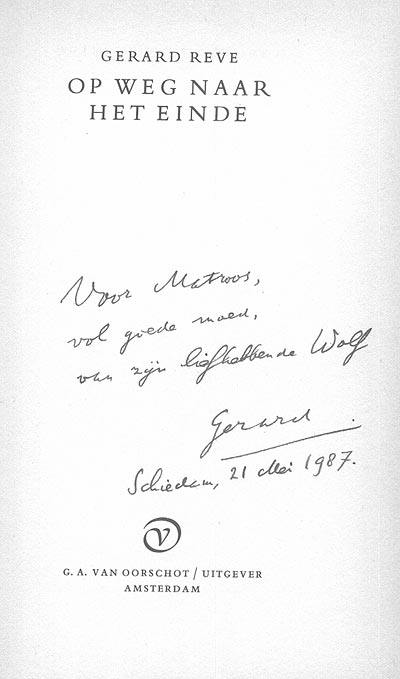 GERARD REVE
OP WEG NAAR
HET EINDE
Voor Matroos,
vol goede moed,
van zijn liefhebbende Wolf
Gerard.
Schiedam, 21 Mei 1987.
G. A. VAN OORSCHOT / UITGEVER
AMSTERDAM